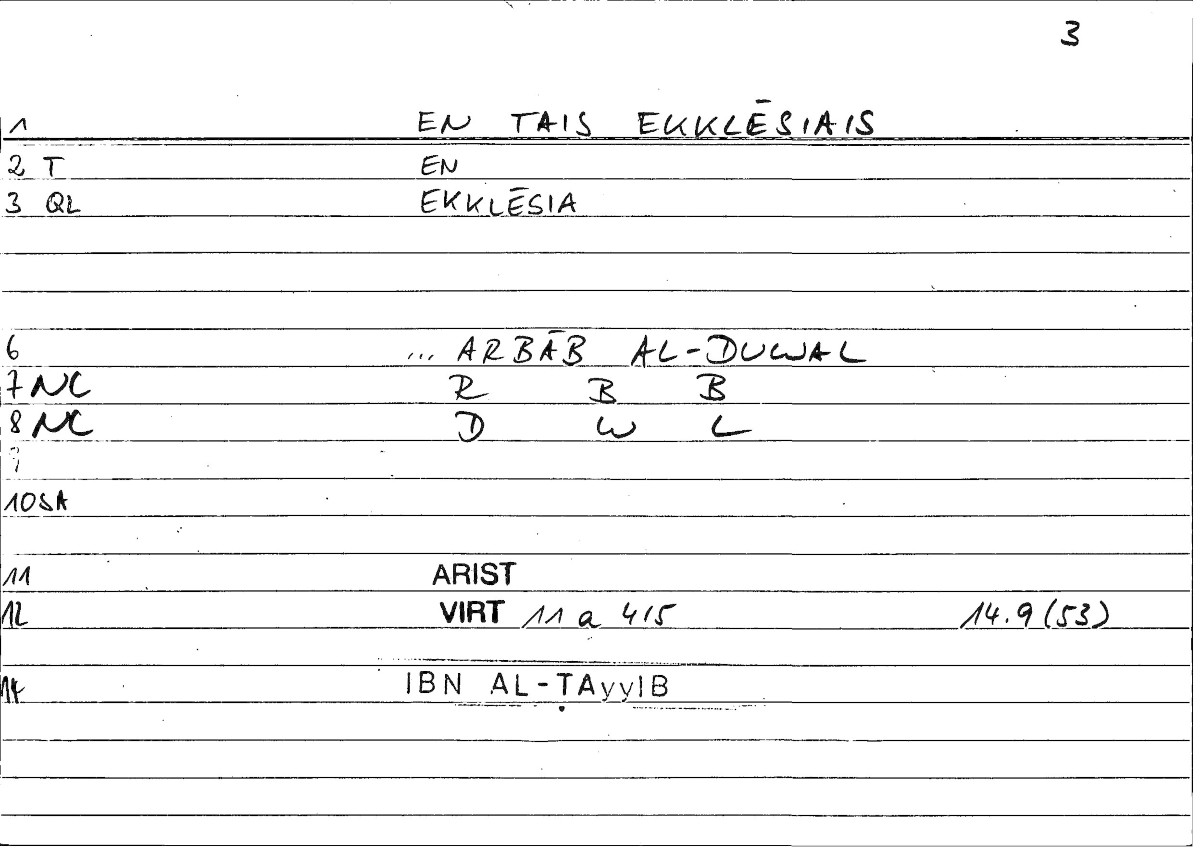 3
1 EN TAIS EKKLĒSIAIS
2 T EN
3 QL EKKLĒSIA
6 ... ARBĀB AL-DUWAL
7 NC R B B
8 NC D W L
9
10 SA
11 ARIST
12 VIRT 11 a 4/5 14.9 (53)
14 IBN AL-ṬAyyIB